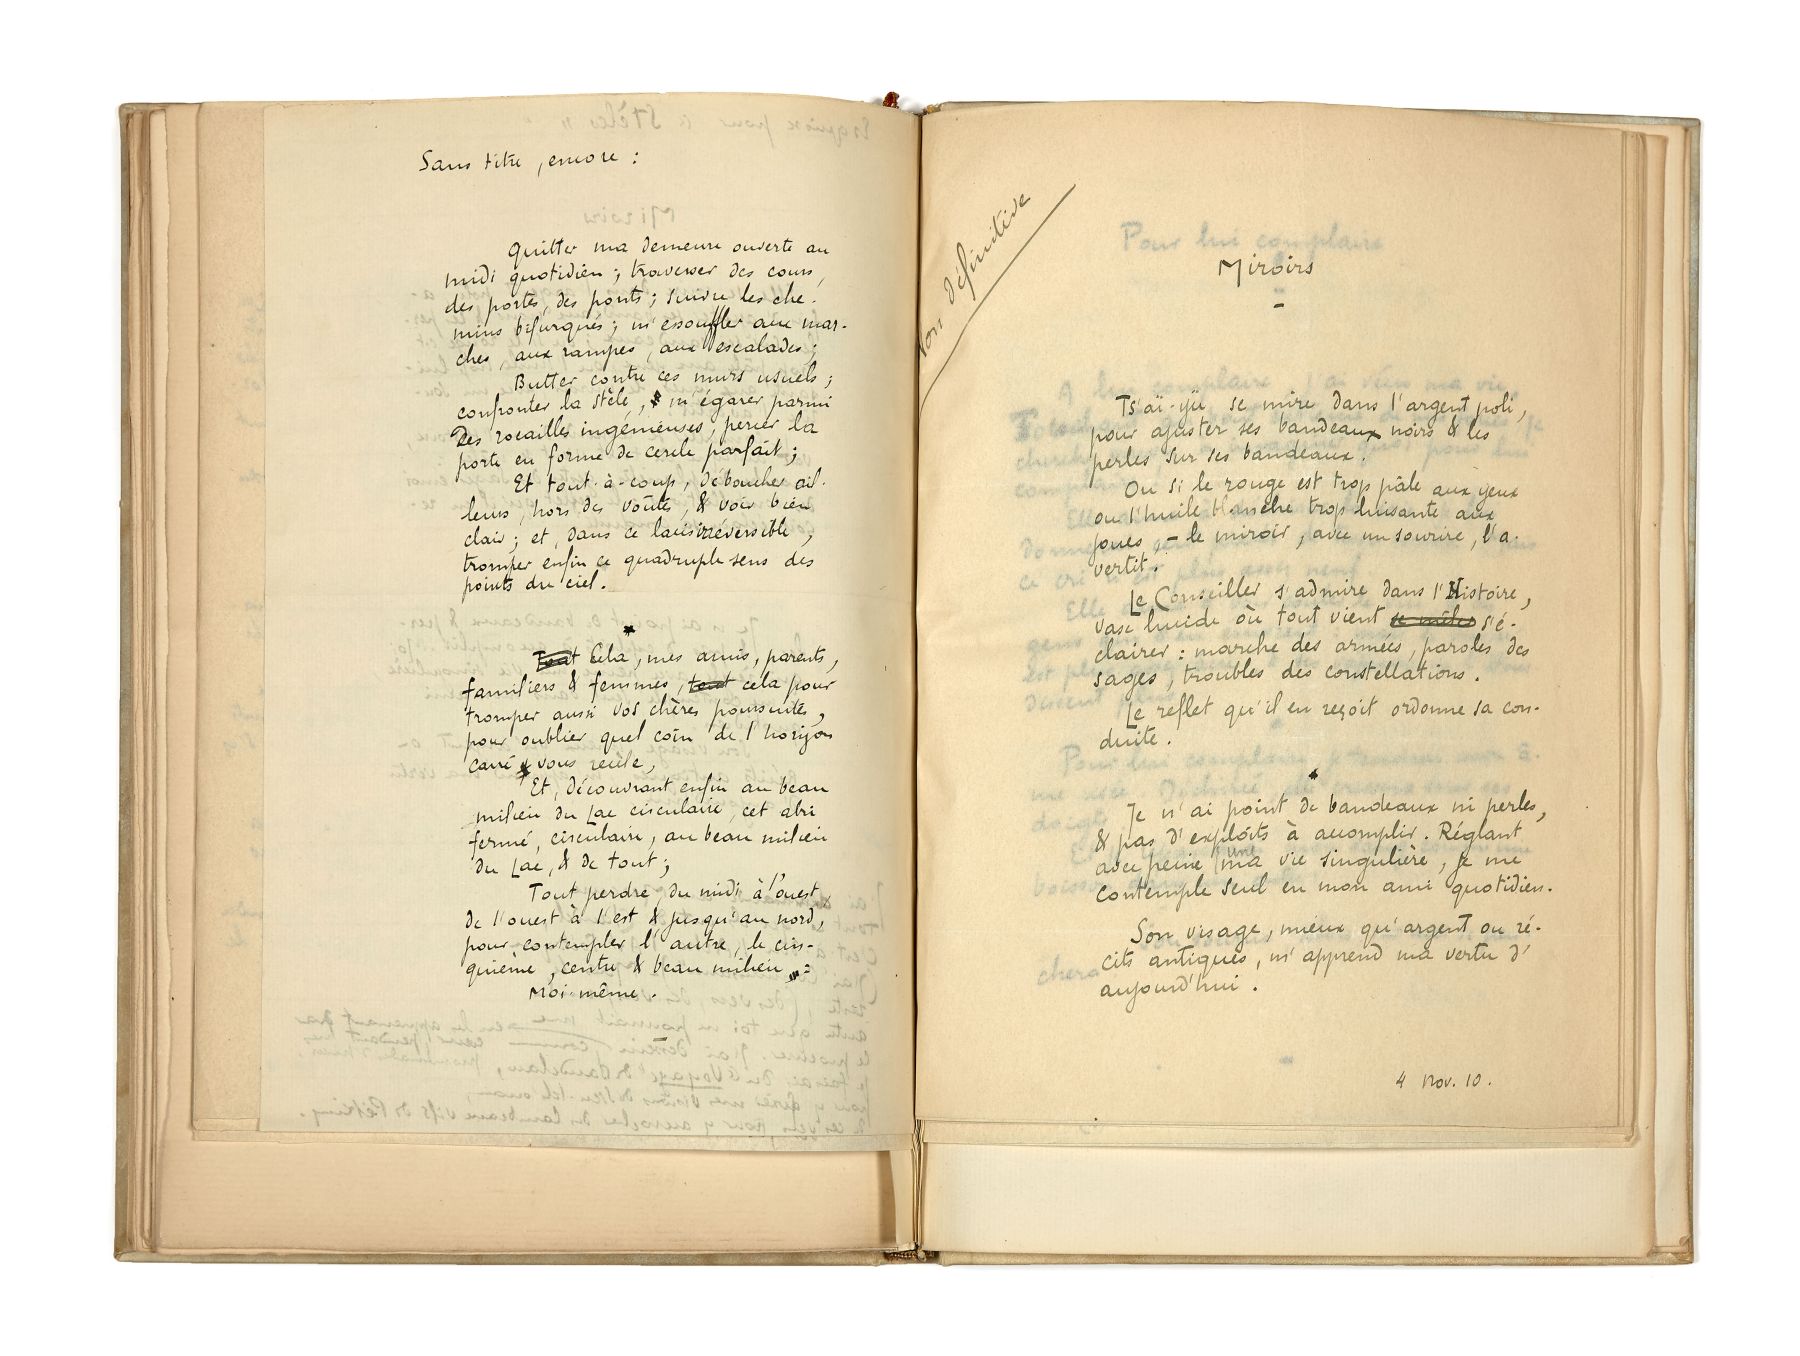 Sans titre, encore :
Quitter ma demeure ouverte au
midi quotidien ; traverser des cours,
des portes, des ponts ; suivre les che-
mins bifurqués ; m'essouffler aux mar-
ches, aux rampes, aux escalades ;
Butter contre ces murs usuels ;
confronter la stèle, m'égarer parmi
des rocailles ingénieuses, percer la
porte en forme de cercle parfait ;
Et tout-à-coup, déboucher ail-
leurs, hors des voûtes, & voir bien
clair ; et, dans ce lacis irréversible,
tromper enfin ce quadruple sens des
points du ciel.
*
Tout Cela, mes amis, parents,
familiers & femmes, tout cela pour
tromper aussi vos chères poursuites,
pour oublier quel coin de l'horizon
carré vous recèle,
Et, découvrant enfin au beau
milieu du Lac circulaire, cet abri
fermé, circulaire, au beau milieu
du Lac, & de tout ;
Tout perdre, du midi à l'ouest
de l'ouest à l'est & jusqu'au nord,
pour contempler l'autre, le cin-
quième, centre & beau milieu :
Moi-même.
définitive
Miroirs
Ts'aï-yü se mire dans l'argent poli,
pour ajuster ses bandeaux noirs & les
perles sur ses bandeaux.
Ou si le rouge est trop pâle aux yeux
ou l'huile blanche trop luisante aux
joues, – le miroir, avec un sourire, l'a-
vertit.
Le Conseiller s'admire dans l'Histoire,
vase lucide où tout vient se mêler s'é-
clairer : marche des armées, paroles des
sages, troubles des constellations.
Le reflet qu'il en reçoit ordonne sa con-
duite.
*
Je n'ai point de bandeaux ni perles,
& pas d'exploits à accomplir. Réglant
avec peine ma vie singulière, je me
contemple seul en mon ami quotidien.
Son visage, mieux qu'argent ou ré-
cits antiques, m'apprend ma vertu d'
aujourd'hui.
4 Nov. 10.